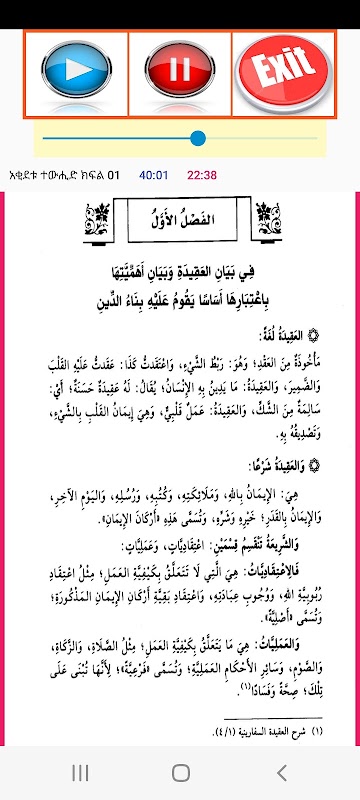 Exit
አቂደቱ ተውሒድ ክፍል 01 40:01 22:38
الفَصْلُ الأَوَّلُ
فِي بَيَانِ العَقِيدَةِ وَبَيَانِ أَهَمِّيَّتِهَا
بِاعْتِبَارِهَا أَسَاسًا يَقُومُ عَلَيْهِ بِنَاءُ الدِّينِ
العَقِيدَةُ لُغَةً:
مَأْخُوذَةٌ مِنَ العَقْدِ؛ وَهُوَ: رَبْطُ الشَّيْءِ، وَاعْتَقَدتُّ كَذَا: عَقَدتُّ عَلَيْهِ القَلْبَ
وَالضَّمِيرَ، وَالعَقِيدَةُ: مَا يَدِينُ بِهِ الإِنْسَانُ؛ يُقَالُ: لَهُ عَقِيدَةٌ حَسَنَةٌ؛ أَيْ:
سَالِمَةٌ مِنَ الشَّكِّ، وَالعَقِيدَةُ: عَمَلٌ قَلْبِيٌّ، وَهِيَ إِيمَانُ القَلْبِ بِالشَّيْءِ،
وَتَصْدِيقُهُ بِهِ.
وَالعَقِيدَةُ شَرْعًا:
هِيَ: الإِيمَانُ بِاللهِ، وَمَلَائِكَتِهِ، وَكُتُبِهِ، وَرُسُلِهِ، وَاليَوْمِ الآخِرِ،
وَالإِيمَانُ بِالقَدَرِ؛ خَيْرِهِ وَشَرِّهِ، وَتُسَمَّى هَذِهِ «أَرْكَانَ الإِيمَانِ».
وَالشَّرِيعَةُ تَنْقَسِمُ قِسْمَيْنِ: اعْتِقَادِيَّاتٍ، وَعَمَلِيَّاتٍ:
فَالِاعْتِقَادِيَّاتُ: هِيَ الَّتِي لَا تَتَعَلَّقُ بِكَيْفِيَّةِ العَمَلِ؛ مِثْلُ اعْتِقَادِ
رُبُوبِيَّةِ اللهِ، وَوُجُوبِ عِبَادَتِهِ، وَاعْتِقَادِ بَقِيَّةِ أَرْكَانِ الإِيمَانِ المَذْكُورَةِ؛
وَتُسَمَّى «أَصْلِيَّةً».
وَالعَمَلِيَّاتُ: هِيَ مَا يَتَعَلَّقُ بِكَيْفِيَّةِ العَمَلِ؛ مِثْلُ الصَّلَاةِ، وَالزَّكَاةِ،
وَالصَّوْمِ، وَسَائِرِ الأَحْكَامِ العَمَلِيَّةِ؛ وَتُسَمَّى «فَرْعِيَّةً»؛ لِأَنَّهَا تُبْنَى عَلَى
تِلْكَ؛ صِحَّةً وَفَسَادًا(١).
(١) شرح العقيدة السفارينية (٤/١).